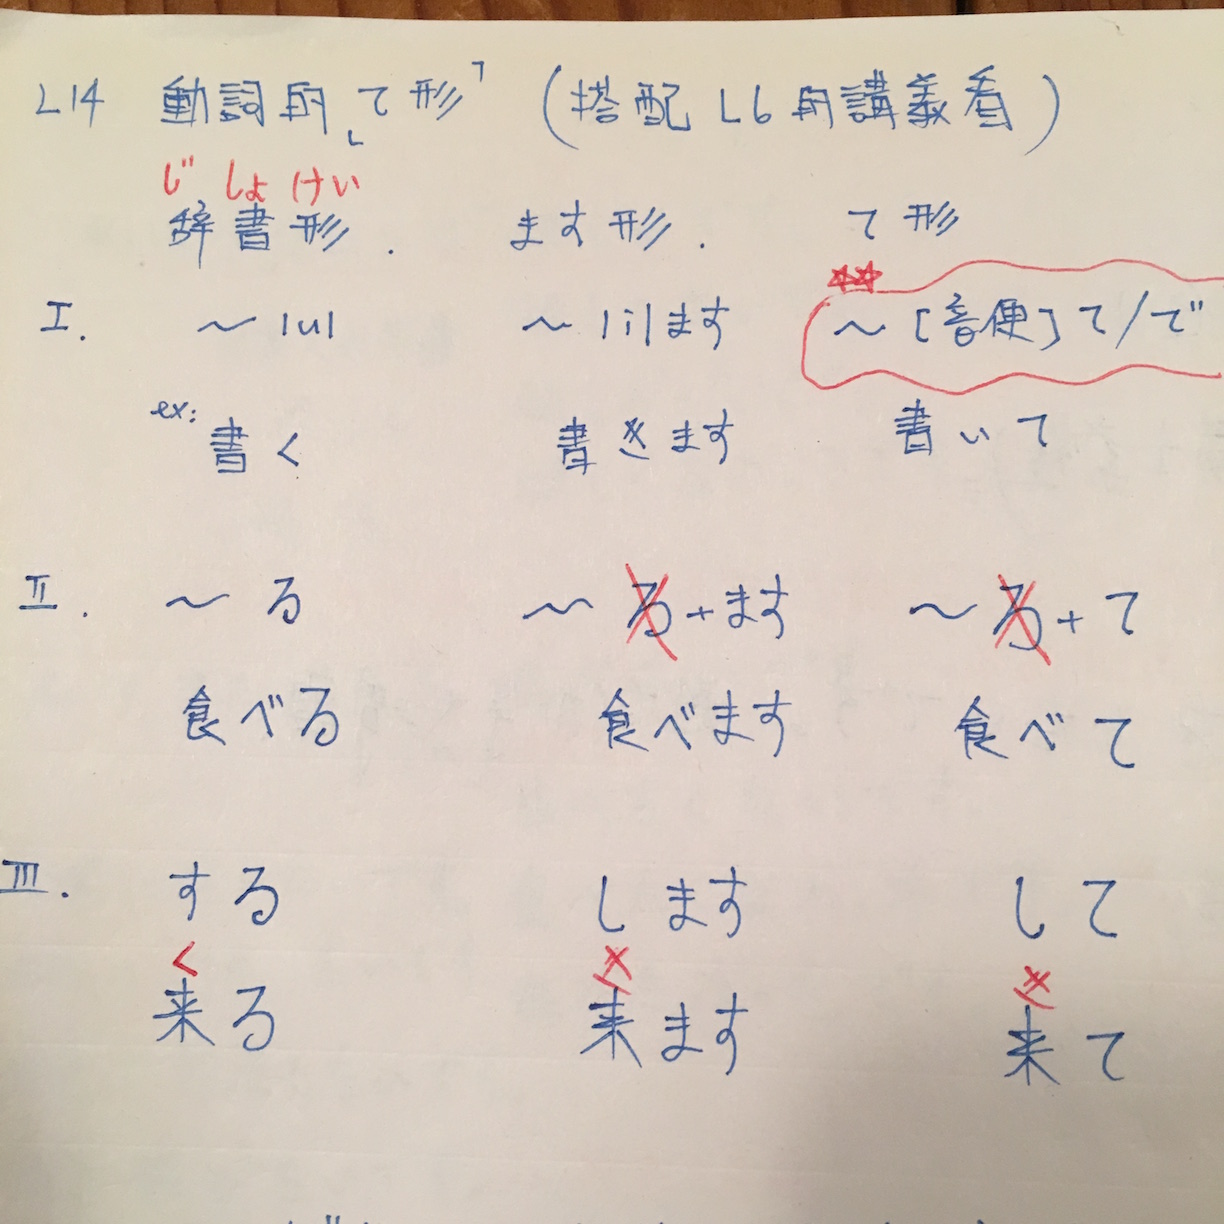 L14 動詞的「て形」(搭配L6的講義看)
じ しょ けい
辞書形. ます形. て形
I. ~|u| ~|i|ます ~[音便]て/で
ex: 書く 書きます 書いて
II. ~る ~る+ます ~る+て
食べる 食べます 食べて
III. する します して
く き き
来る 来ます 来て